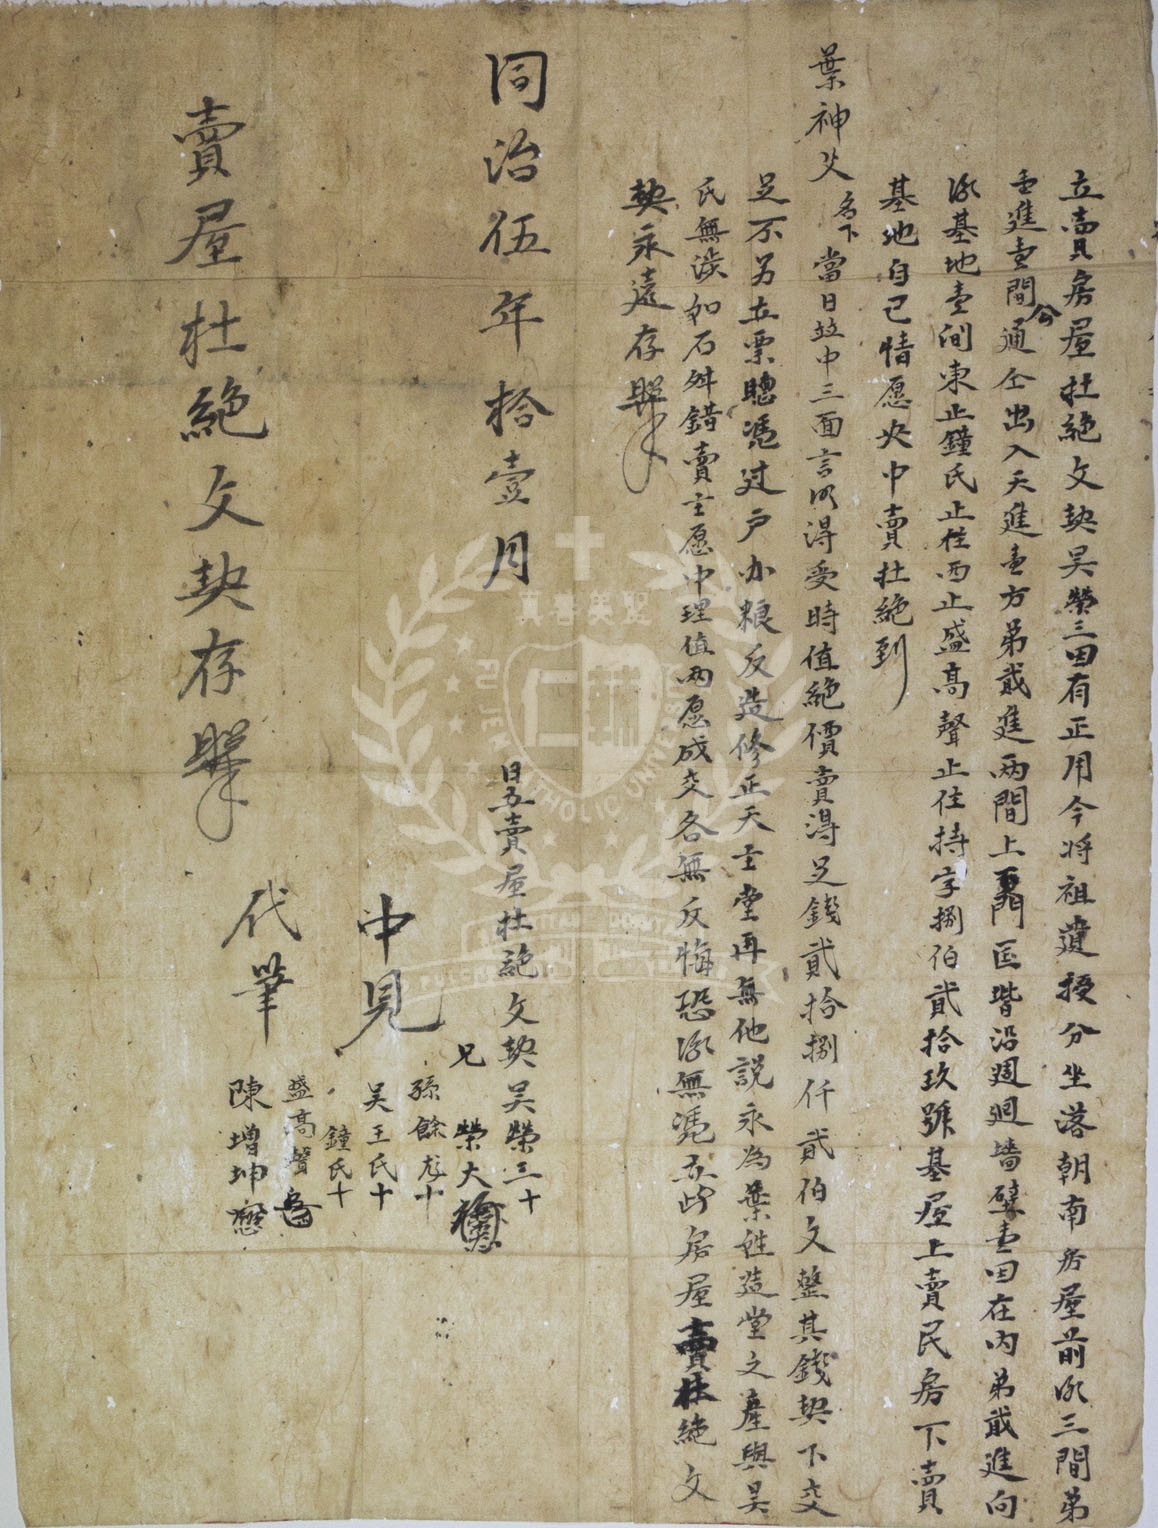 立賣房屋杜絶文契吳榮三囬有正用今將祖遺授分坐落朝南房屋前後三間弟
壹進壹間公通仝出入天進壹方弟貳進两間上門匡階沿週廻墻壁壹囬在内弟貳進向
後基地壹间東止鐘氏止柱西止盛髙聲止住持字捌伯貳拾玖號基屋上賣民房下賣
基地自己情愿央中賣杜絶到
葉神父名下當日竝中三面言明得受時值絶價賣得足錢貳拾捌仟貳伯文整其錢契下交
足不另立票聽憑过户办粮反造修正天主堂再無他説永為葉姓造堂之產與吴
氏無涉如石舛錯賣主愿中理值两愿成交各無反悔恐後無凴立此房屋賣杜絶文
契永遠存照
同治伍年拾壹月 日立賣屋杜絶文契吴榮三十
兄 榮大
孫餘彪十
中見 吴王氏十
鐘氏十
盛髙聲
代筆 陳增坤
賣屋杜絶文契存照
真善美聖
FU JEN CATHOLIC UNIVERSITY